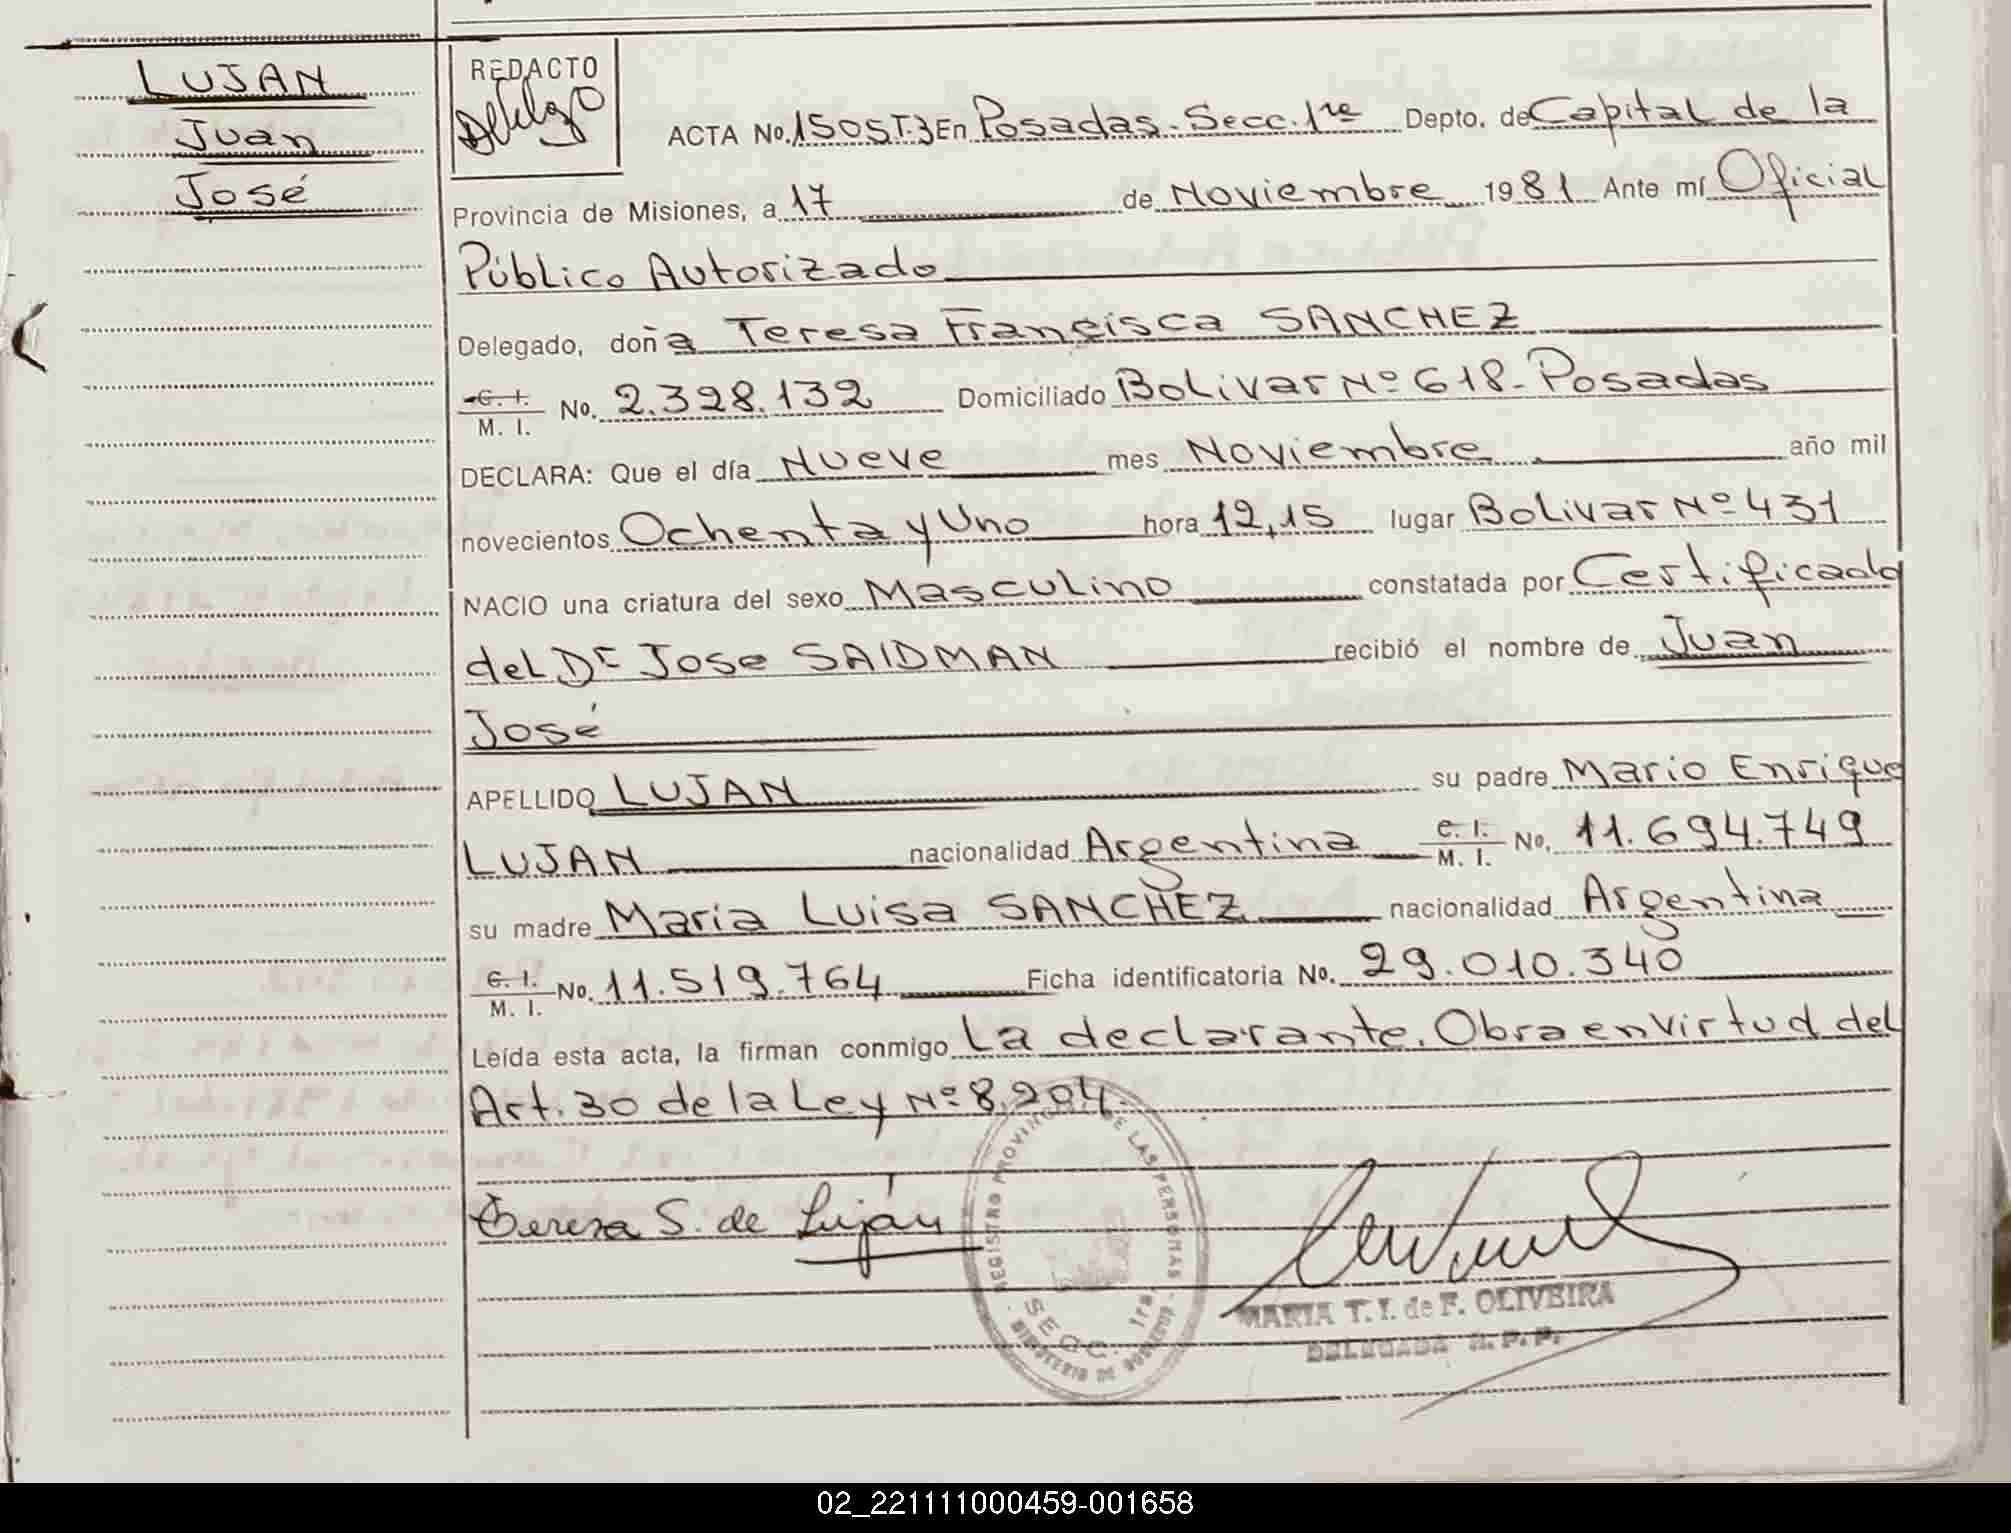 LUJAN
Juan
José
REDACTO
ACTA No. 1505T.3 En Posadas. Secc. 1ra Depto. de Capital de la
Provincia de Misiones, a 17 de Noviembre 1981 Ante mí Oficial
Público Autorizado
Delegado, doña Teresa Francisca SANCHEZ
C. I.
M. I. No. 2.328.132 Domiciliado Bolivar Nº 618- Posadas
DECLARA: Que el día Nueve mes Noviembre año mil
novecientos Ochenta y Uno hora 12,15 lugar Bolivar Nº 431
NACIO una criatura del sexo Masculino constatada por Certificado
del Dr Jose SAIDMAN recibió el nombre de Juan
José
APELLIDO LUJAN su padre Mario Enrique
LUJAN nacionalidad Argentina C. I. M. I. No. 11.694.749
su madre Maria Luisa SANCHEZ nacionalidad Argentina
C. I.
M. I. No. 11.519.764 Ficha identificatoria No. 29.010.340
Leída esta acta, la firman conmigo La declarante. Obra en virtud del
Art. 30 de la Ley Nº 8.204.
Teresa S. de Luján
REGISTRO PROVINCIAL DE LAS PERSONAS
SECC. 1ra.
MINISTERIO DE GOBIERNO
MARIA T. I. de F. OLIVEIRA
DELEGADA R. P. P.
02_221111000459-001658